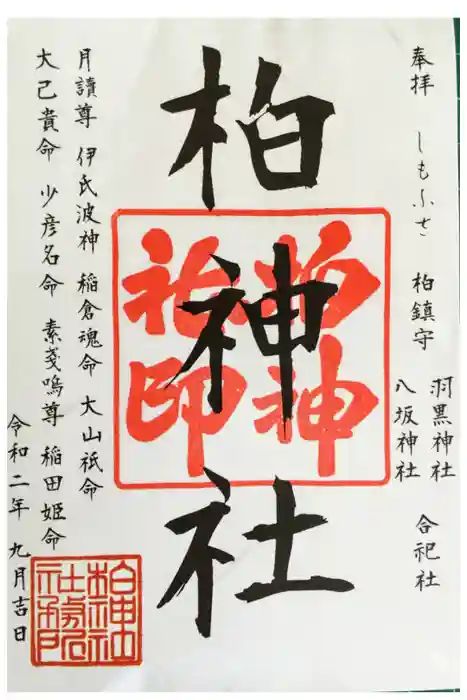 奉拝 しもふさ 柏鎮守 羽黒神社 八坂神社 合祀社
柏神社
柏神社印
月讀尊 伊氐波神 稲倉魂命 大山祇命
大己貴命 少彦名命 素戔嗚尊 稲田姫命
令和二年 九月吉日
柏神社社務所之印